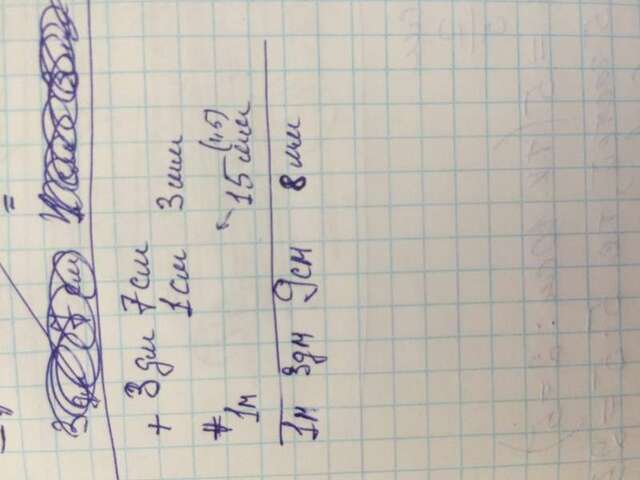 =
3 дм 7 см
+ 3 дм 7 см
1 см 3 мм
1 м 15 мм (1,5)
1 м 3 дм 9 см 8 мм